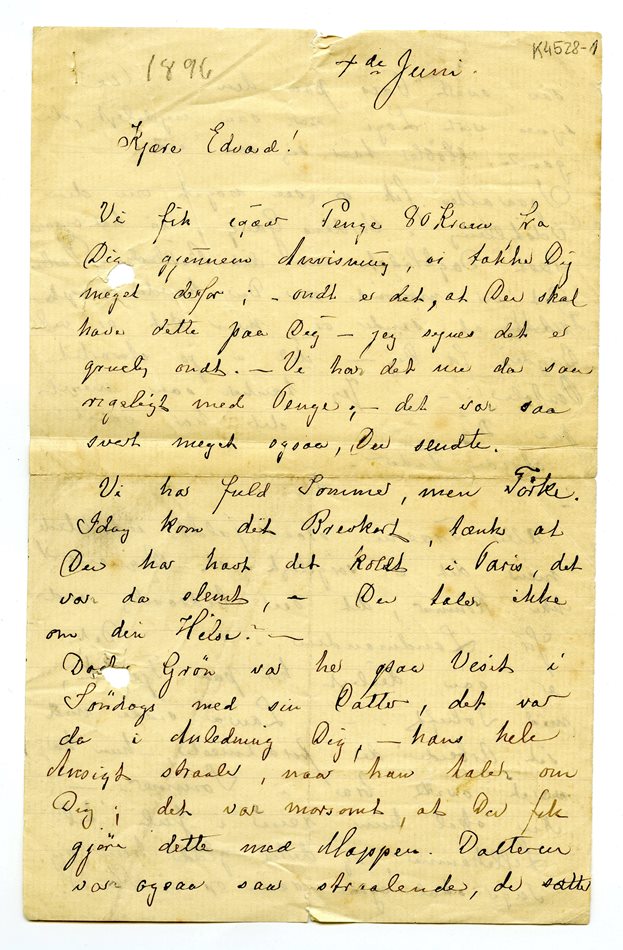 K4528-1
1896
4de Juni.
Kjære Edvard!
Vi fik igaar Penge 80 Kroner fra
Dig gjennem Anvisning, vi takke Dig
meget derfor; – ondt er det, at Du skal
have dette paa Dig – jeg synes det er
gruelig ondt. – Vi har det nu da saa
rigeligt med Penge; – det var saa
svært meget ogsaa, Du sendte.
Vi har fuld Sommer, men Törke.
Idag kom dit Brevkort, tænk at
Du har havt det koldt i Paris, det
var da slemt, – Du taler ikke
om din Helse? –
Grön var her paa Visit i
Söndags med sin Datter, det var
da i Anledning Dig, – hans hele
Ansigt straaler, naar han taler om
Dig; det var morsomt, at Du fik
gjöre dette med Mappen. Datteren
var ogsaa saa straalende, de satte